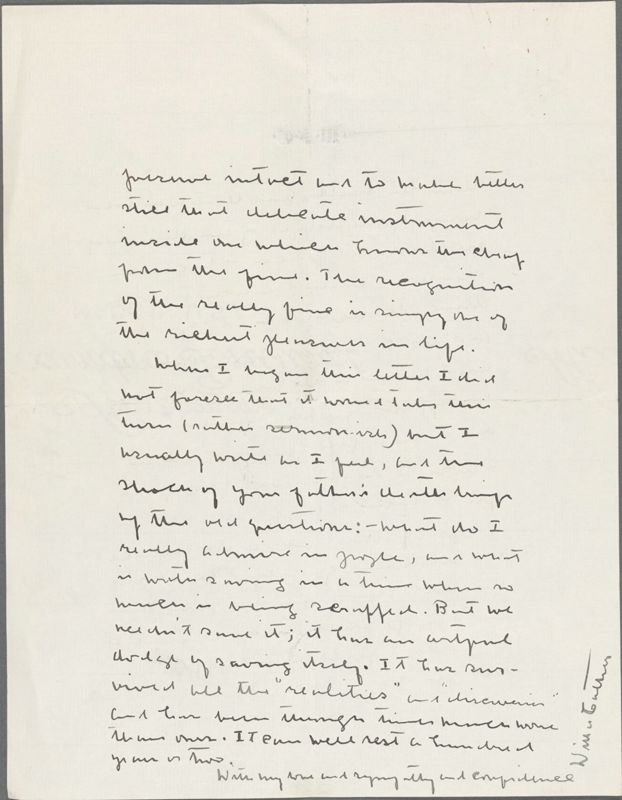 personal intact and to make better
still that delicate instrument
inside one which knows the cheap
from the fine. The recognition
of the really fine is simply one of
the richest pleasures in life.
When I began this letter I did
not foresee that it would take this
turn (rather sermon-ish) but I
usually write as I feel, and the
shock of your father's death brings
up the old questions:- what do I
really admire in people, and what
is worth saving in a time when so
much is being scrapped. But we
needn't save it; it has an artful
dodge of saving itself. It has sur-
vived all the "realities" and "discoveries"
and has been through times much worse
than ours. It can well rest a hundred
years or two.
With my love and sympathy and confidence
Willa Cather